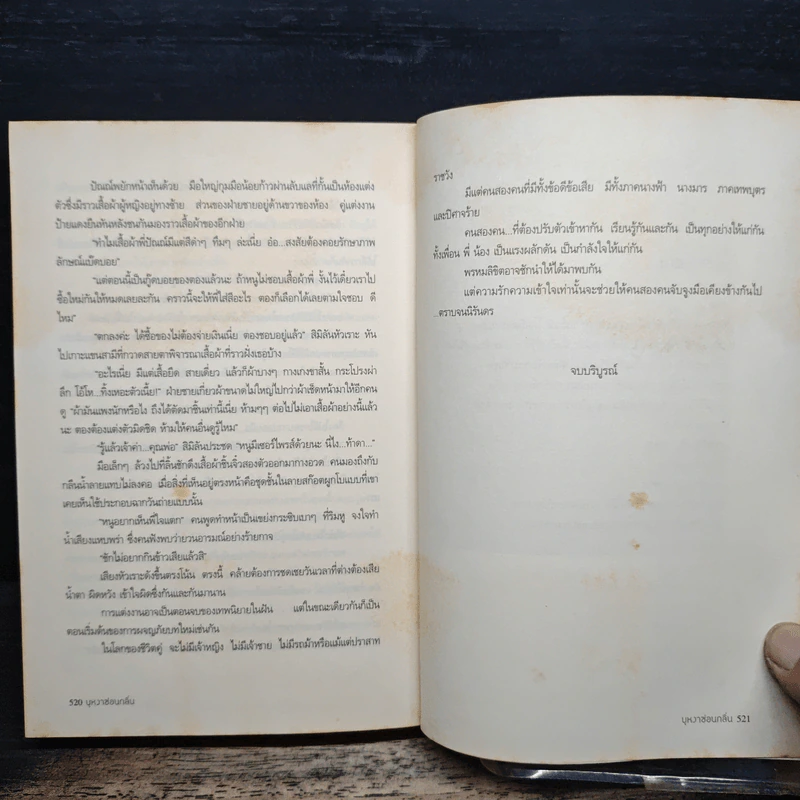 ปัณณ์พยักหน้าเห็นด้วย มือใหญ่กุมมือน้อยก้าวผ่านลับแลที่กั้นเป็นห้องแต่ง
ตัวซึ่งมีราวเสื้อผ้าผู้หญิงอยู่ทางซ้าย ส่วนของฝ่ายชายอยู่ด้านขวาของห้อง คู่แต่งงาน
ป้ายแดงยืนหันหลังชนกันมองราวเสื้อผ้าของอีกฝ่าย
“ทำไมเสื้อผ้าพี่ปัณณ์มีแต่สีดำๆ ทึมๆ ล่ะเนี่ย อ๋อ...สงสัยต้องคอยรักษาภาพ
ลักษณ์แบ๊ดบอย”
“แต่ตอนนี้เป็นกู๊ดบอยของตองแล้วนะ ถ้าหนูไม่ชอบเสื้อผ้าพี่ งั้นไว้เดี๋ยวเราไป
ซื้อใหม่กันให้หมดเลยละกัน คราวนี้จะให้พี่ใส่สีอะไร ตองก็เลือกได้เลยตามใจชอบ ดี
ไหม”
“ตกลงค่ะ ได้ซื้อของไม่ต้องจ่ายเงินเนี่ย ตองชอบอยู่แล้ว” สิมิลันหัวเราะ หัน
ไปเกาะแขนสามีที่กวาดสายตาพิจารณาเสื้อผ้าที่ราวฝั่งเธอบ้าง
“อะไรเนี่ย มีแต่เสื้อยืด สายเดี่ยว แล้วก็ผ้าบางๆ กางเกงขาสั้น กระโปรงผ่า
ลึก โอ้โห...ทิ้งเหอะตัวเนี้ย!” ฝ่ายชายเกี่ยวผ้าขนาดไม่ใหญ่ไปกว่าผ้าเช็ดหน้ามาให้อีกคน
ดู “ผ้ามันแพงนักหรือไง ถึงได้ตัดมาชิ้นเท่านี้เนี่ย ห้ามๆๆ ต่อไปไม่เอาเสื้อผ้าอย่างนี้แล้ว
นะ ตองต้องแต่งตัวมิดชิด ห้ามให้คนอื่นดูรู้ไหม”
“รู้แล้วเจ้าค่า...คุณพ่อ” สิมิลันประชด “หนูมีเซอร์ไพรส์ด้วยนะ นี่ไง...ท้าดา...”
มือเล็กๆ ล้วงไปที่ลิ้นชักดึงเสื้อผ้าชิ้นจิ๋วสองตัวออกมากางอวด คนมองถึงกับ
กลืนน้ำลายแทบไม่ลงคอ เมื่อสิ่งที่เห็นอยู่ตรงหน้าคือชุดชั้นในลายสก๊อตผูกโบแบบที่เขา
เคยเห็นใช้ประกอบฉากวันถ่ายแบบนั้น
“หนูอยากเห็นพี่ใจแตก” คนพูดทำหน้าเป็นเขย่งกระซิบเบาๆ ที่ริมหู จงใจทำ
น้ำเสียงแหบพร่า ซึ่งคนฟังพบว่ายวนอารมณ์อย่างร้ายกาจ
“ชักไม่อยากกินข้าวเสียแล้วสิ”
เสียงหัวเราะดังขึ้นตรงโน้น ตรงนี้ คล้ายต้องการชดเชยวันเวลาที่ต่างต้องเสีย
น้ำตา ผิดหวัง เข้าใจผิดซึ่งกันและกันมานาน
การแต่งงานอาจเป็นตอนจบของเทพนิยายในฝัน แต่ในขณะเดียวกันก็เป็น
ตอนเริ่มต้นของการผจญภัยบทใหม่เช่นกัน
ในโลกของชีวิตคู่ จะไม่มีเจ้าหญิง ไม่มีเจ้าชาย ไม่มีรถม้าหรือแม้แต่ปราสาท
520 บุหงาซ่อนกลิ่น
ราชวัง
มีแต่คนสองคนที่มีทั้งข้อดีข้อเสีย มีทั้งภาคนางฟ้า นางมาร ภาคเทพบุตร
และปีศาจร้าย
คนสองคน...ที่ต้องปรับตัวเข้าหากัน เรียนรู้กันและกัน เป็นทุกอย่างให้แก่กัน
ทั้งเพื่อน พี่ น้อง เป็นแรงผลักดัน เป็นกำลังใจให้แก่กัน
พรหมลิขิตอาจชักนำให้ได้มาพบกัน
แต่ความรักความเข้าใจเท่านั้นจะช่วยให้คนสองคนจับจูงมือเคียงข้างกันไป
...ตราบจนนิรันดร
จบบริบูรณ์
บุหงาซ่อนกลิ่น 521